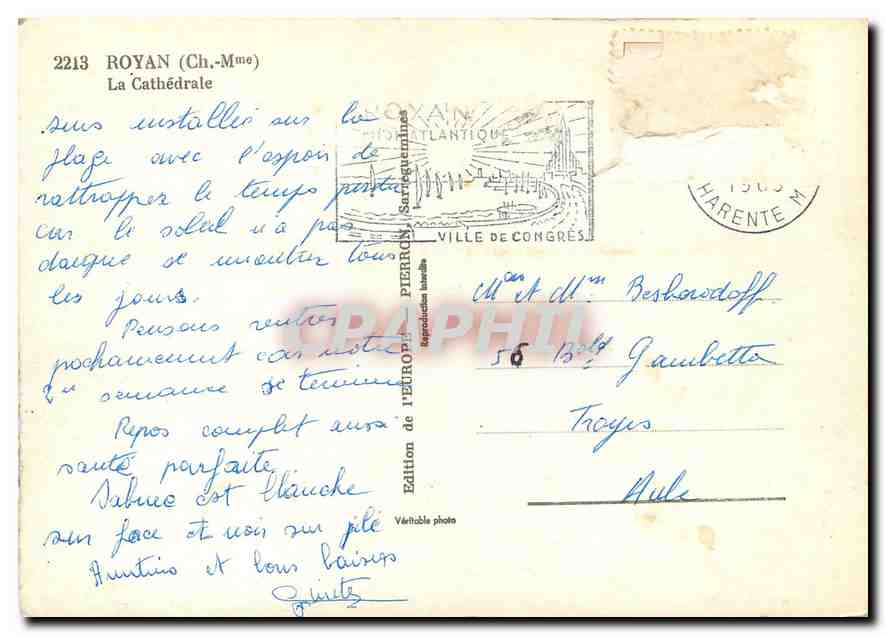 2213 ROYAN (Ch.-Mme)
La Cathédrale
sens installés sur la
plage avec l'espoir de
rattrapper le temps perdu
car le soleil n'a pas
daigné se montrer tous
les jours.
Pensons rentrer
prochainement car notre
2e semaine se termine
Repos complet aussi
santé parfaite
est blanche
sur face et noir sur
et bons baisers
Ginette
ROYAN
ATLANTIQUE
VILLE DE CONGRÈS
HARENTE M
Edition de l'EUROPE - PIERRON, Sarreguemines
Reproduction interdite
Véritable photo
CPAPHIL
Mr et Mme Besborodoff
56 Bold Gambetta
Troyes
Aube